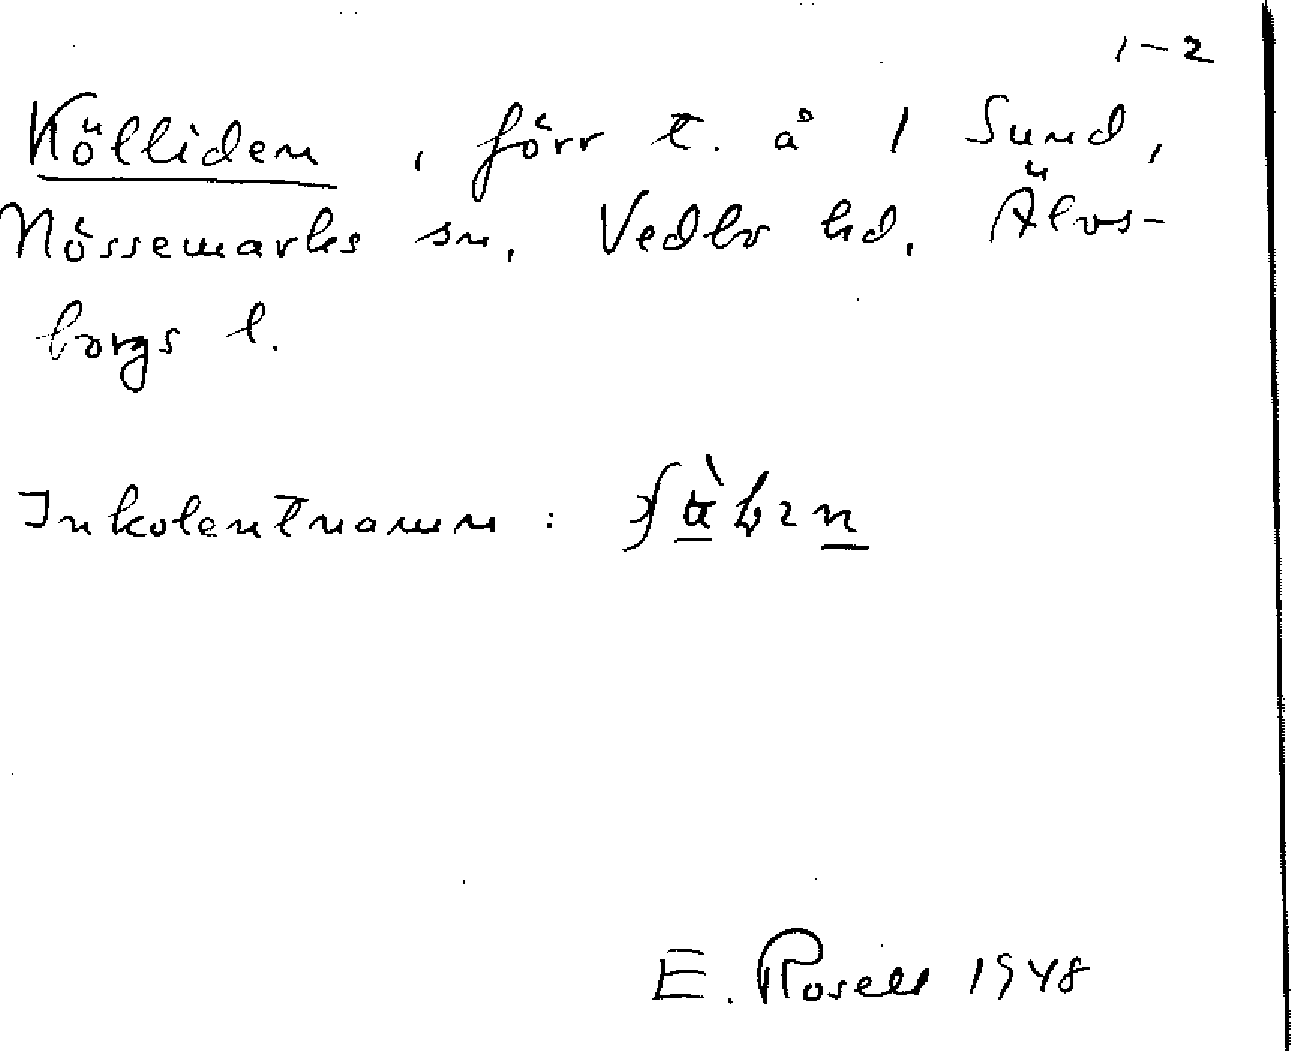 1-2
Kölliden, förr t. å 1 Sund,
Nössemarks sn, Vedbo hd. Älvs-
borgs l.
Inkolentnamn:
E. Rosell 1948